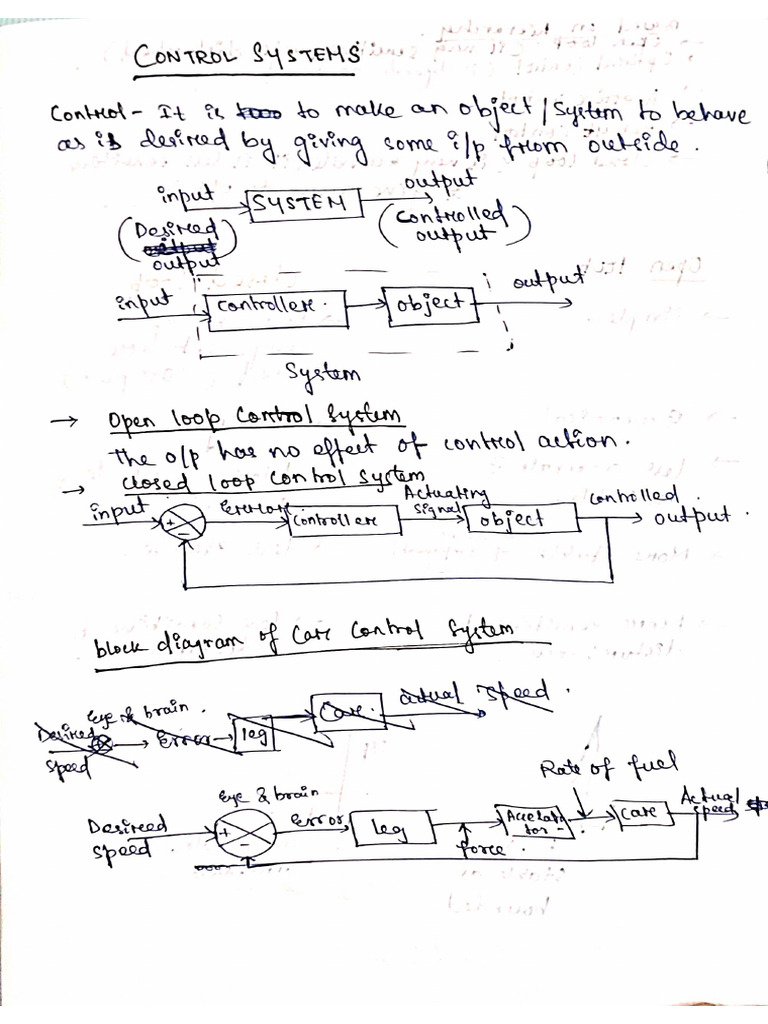 CONTROL SYSTEMS
Control - It is to make an object/System to behave
as is desired by giving some i/p from outside.
input SYSTEM output
(Desired output) (Controlled output)
input controller. object output
System
→ Open loop Control System
The o/p has no effect of control action.
→ closed loop control system
input + − Error controller Actuating signal object controlled output.
block diagram of Car Control System
Desired speed Eye & brain. Error leg Car. actual speed.
Rate of fuel
Desired speed. Eye & brain + − Error leg force. Accelator Car Actual speed